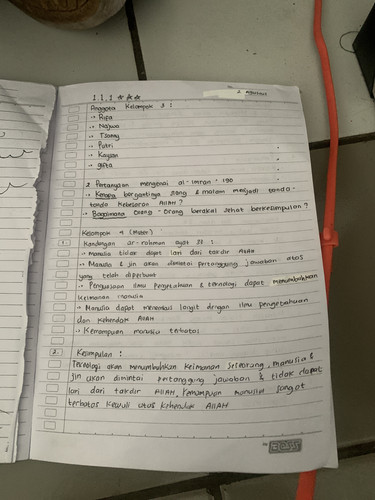 Anggota Kelompok 3 :
-> Rifa
-> Najwa
-> Tsamy
-> Putri
-> Kayan
-> Gifta
2 Pertanyaan mengenai al-imran : 190
-> Kenapa bergantinya siang & malam menjadi tanda-
tanda kebesaran Allah ?
-> Bagaimana orang-orang berakal sehat berkesimpulan ?
Kelompok 4 (Materi)
1. Kandungan ar-rahman ayat 33 :
-> Manusia tidak dapat lari dari takdir Allah
-> Manusia & jin akan dimintai pertanggung jawaban atas
yang telah diperbuat
-> Penguasaan ilmu pengetahuan & teknologi dapat menumbuhkan
keimanan manusia
-> Manusia dapat menembus langit dengan ilmu pengetahuan
dan kehendak Allah
-> Kemampuan manusia terbatas
2. Kesimpulan :
Teknologi akan menumbuhkan keimanan seseorang, manusia &
jin akan dimintai pertanggung jawaban & tidak dapat
lari dari takdir Allah, kemampuan manusia sangat
terbatas kecuali atas kehendak Allah